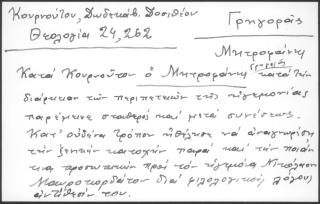 Κουρνούτου, Δωδεκάβ. Δοσιθέου
Θεολογία 24, 262
Γρηγοράς
Μητρομάνης
Κατά Κουρνούτον ὁ Μητρομάνης Γρηγοράς κατά τήν
διάρκειαν τῶν περιπετειῶν τῆς ἡγεμονίας
παρέμεινε σταθερός καί μετά συνέσεως.
Κατ' οὐδένα τρόπον ἠθέλησε νά ἀναγνωρίσῃ
τήν ξενικήν κατοχήν παρά καί τήν
προσωπικήν πρός τόν ἡγεμόνα Νικόλαον
Μαυροκορδάτον διά φιλολογικούς λόγους
ἀντίθεσίν του.